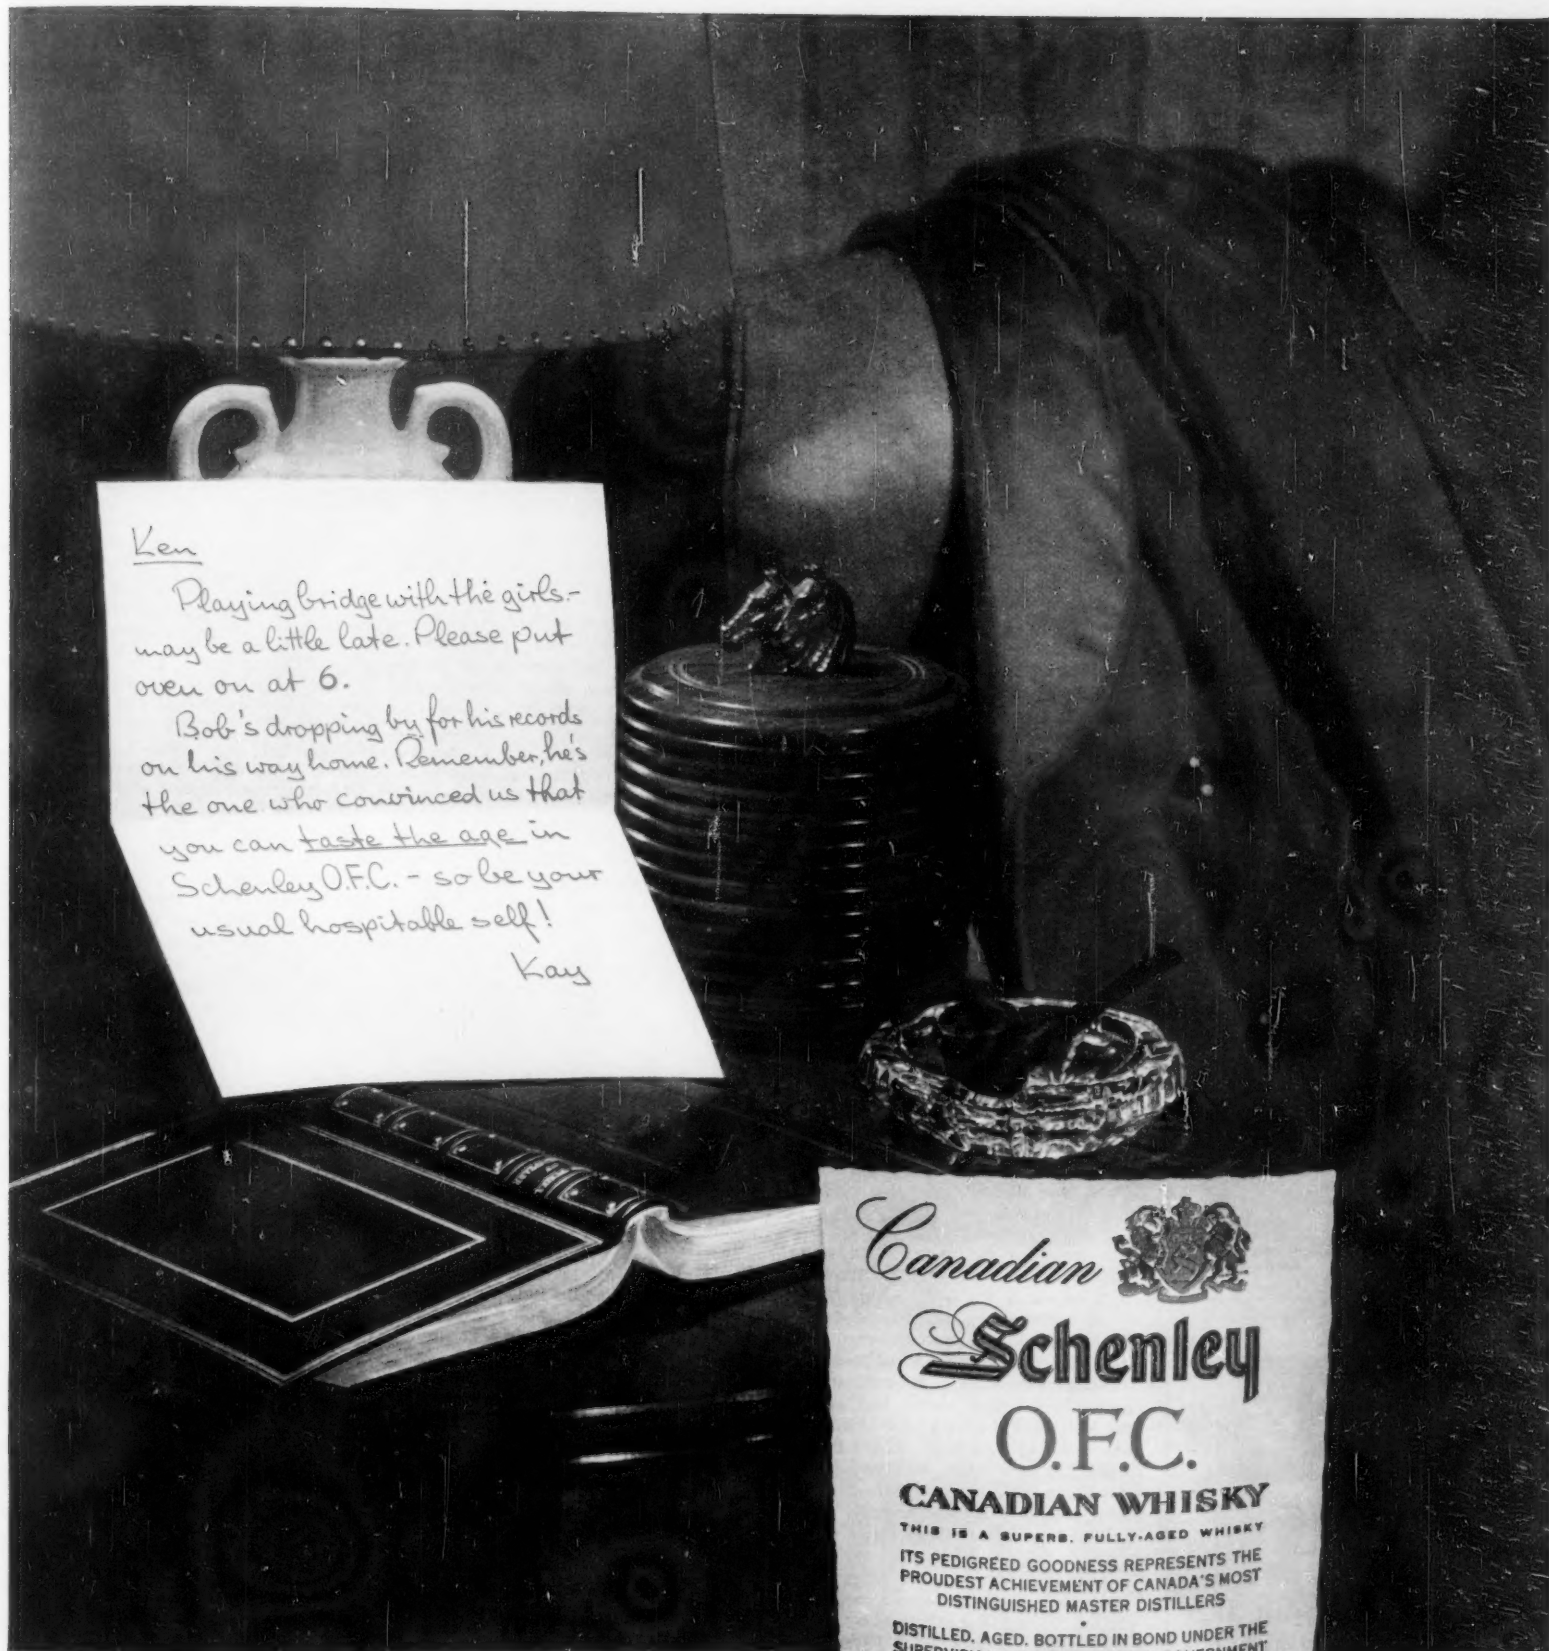 Ken
Playing bridge with the girls -
may be a little late. Please put
oven on at 6.
Bob's dropping by for his records
on his way home. Remember, he's
the one who convinced us that
you can taste the age in
Schenley O.F.C. - so be your
usual hospitable self!
Kay
Canadian
Schenley
O.F.C.
CANADIAN WHISKY
THIS IS A SUPERB, FULLY-AGED WHISKY
ITS PEDIGREED GOODNESS REPRESENTS THE
PROUDEST ACHIEVEMENT OF CANADA'S MOST
DISTINGUISHED MASTER DISTILLERS
DISTILLED, AGED, BOTTLED IN BOND UNDER THE